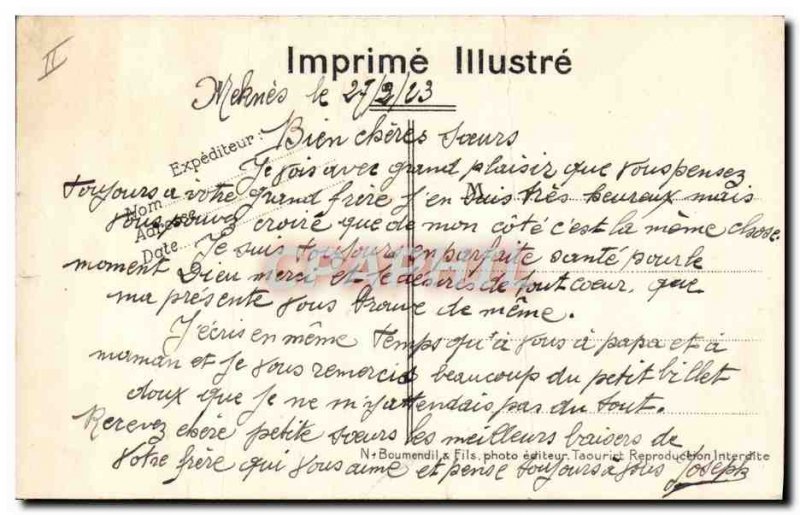 II
Imprimé Illustré
Meknès le 27/2/23
Expéditeur:
Nom
Adresse
Date
M
Bien chères soeurs
Je vois avec grand plaisir que vous pensez
toujours a votre grand frère j'en suis très heureux mais
vous pouvez croire que de mon côté c'est la même chose.
Je suis toujours en parfaite santé pour le
moment Dieu merci et je désire de tout coeur, que
ma présente vous trouve de même.
J'écris en même temps qu'à vous à papa et à
maman et je vous remercie beaucoup du petit billet
doux que je ne m'y attendais pas du tout.
Recevez chère petite soeurs les meilleurs baisers de
votre frère qui vous aime et pense toujours à vous Joseph
N. Boumendil & Fils, photo éditeur. Taourirt Reproduction Interdite
CPAPHIL